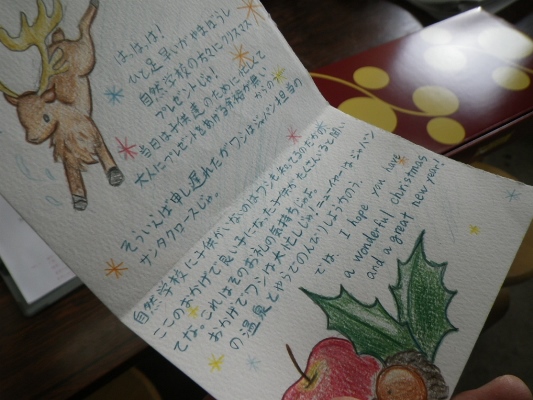 はっはっは!
ひと足早いがやまほうし
自然学校の方々にクリスマス
プレゼントじゃ!
当日は子供達のために忙しくて
大人にプレゼントをあげる余裕が無いからのぅ
そういえば申し遅れたがワシはジャパン担当の
サンタクロースじゃ。
自然学校に子供がいないのはワシも知ってるのだが
ここのおかげで良い子になった子供がたくさんいると聞い
てな。これはそのお礼の気持ちじゃよ。
おかげでワシは大忙しじゃ!ニューイヤーはジャパン
の温泉とやらでのんびりしようかのう。
では、 I hope you have
a wonderful christmas
and a great new year!